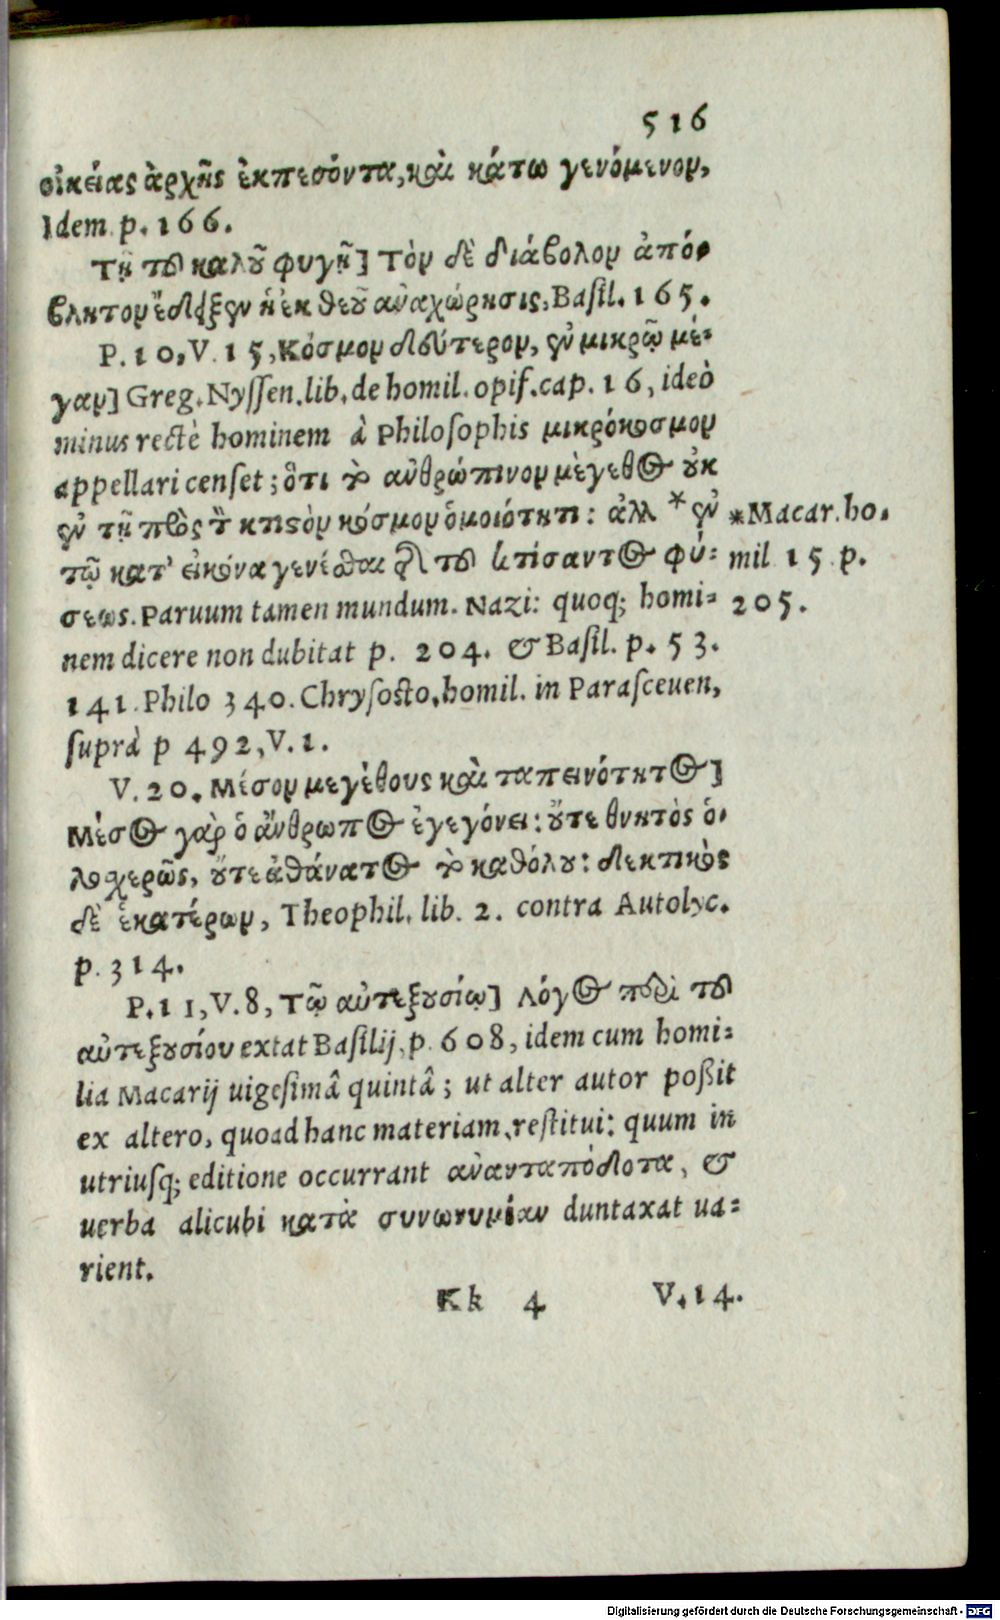 516
οἰκείας ἀρχῆς ἐκπεσόντα, καὶ κάτω γενόμενον,
Idem p. 166.
Τῇ τοῦ καλοῦ φυγῇ] Τὸν δὲ διάβολον ἀπό-
βλητον ἔδειξεν ἡ ἐκ θεοῦ ἀναχώρησις, Basil. 165.
P. 10, V. 15, Κόσμον δεύτερον, ἐν μικρῷ μέ-
γαν] Greg. Nyssen. lib. de homil. opif. cap. 16, ideò
minus rectè hominem à Philosophis μικρόκοσμον
appellari censet; ὅτι τὸ ἀνθρώπινον μέγεθος οὐκ
ἐν τῇ πρὸς τὸν κτιστὸν κόσμον ὁμοιότητι: ἀλλ' * ἐν
τῷ κατ' εἰκόνα γενέσθαι τῆς τοῦ κτίσαντος φύ-
σεως. Paruum tamen mundum. Nazi: quoq; homi-
nem dicere non dubitat p. 204. & Basil. p. 53.
141. Philo 340. Chrysosto, homil. in Parasceuen,
suprà p 492, V. 1.
V. 20. Μέσον μεγέθους καὶ ταπεινότητος]
Μέσος γὰρ ὁ ἄνθρωπος ἐγεγόνει: οὔτε θνητὸς ὁ-
λοχερῶς, οὔτε ἀθάνατος τὸ καθόλου: δεκτικὸς
δὲ ἑκατέρων, Theophil. lib. 2. contra Autolyc.
p. 314.
P. 11, V. 8, Τῷ αὐτεξουσίῳ] Λόγος περὶ τοῦ
αὐτεξουσίου extat Basilij, p. 608, idem cum homi-
lia Macarij uigesimâ quintâ; ut alter autor poßit
ex altero, quoad hanc materiam, restitui: quum in
utriusq; editione occurrant ἀνανταπόδοτα, &
uerba alicubi κατὰ συνωνυμίαν duntaxat ua-
rient.
Kk 4 V. 14.
*Macar. ho.
mil 15 p.
205.
Digitalisierung gefördert durch die Deutsche Forschungsgemeinschaft - DFG